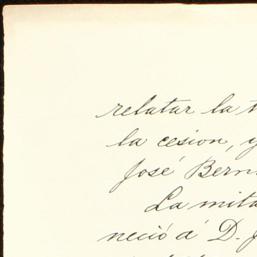 relatar la
la cesion,
José Bern
La mita
neció á D.